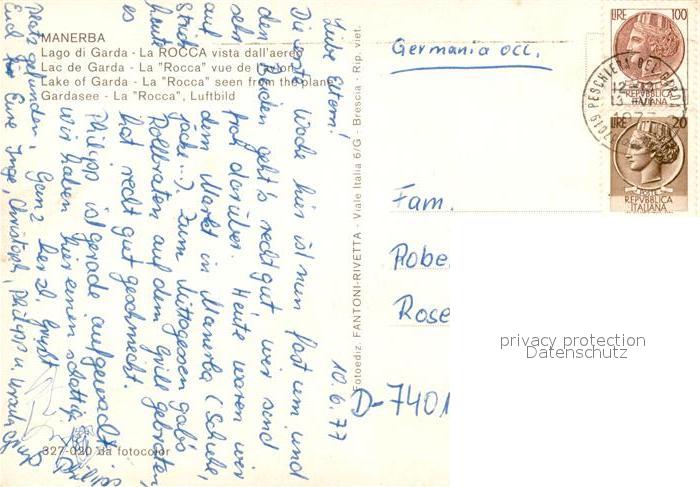 MANERBA
Lago di Garda - La ROCCA vista dall'aereo
Lac de Garda - La "Rocca" vue de l'avion
Lake of Garda - La "Rocca" seen from the plane
Gardasee - La "Rocca", Luftbild
Liebe Eltern!
Die erste Woche hier ist nun fast um und
den Beiden geht's recht gut wir sind
sehr froh darüber. Heute waren wir
auf dem Markt in Manerba (Schuhe,
Zum Mittagessen gab's
heute Rollbraten auf dem Grill gebraten,
es hat recht gut geschmeckt.
Philipp ist gerade aufgewacht
wir haben hier einen schattigen
Platz gefunden. Ganz herzl. Grüße
Euch für Eure Inge, Christoph, Philipp u.
Philipp
10.6.77
327-020 da fotocolor
Fotoediz. FANTONI-RIVETTA - Viale Italia 6/G - Brescia - Rip. viet.
Germania occ.
Fam.
Robe
Rose
D-7401
LIRE 100
REPVBBLICA
ITALIANA
LIRE 20
POSTE
REPVBBLICA
ITALIANA
37019 PESCHIERA DEL GARDA
privacy protection
Datenschutz